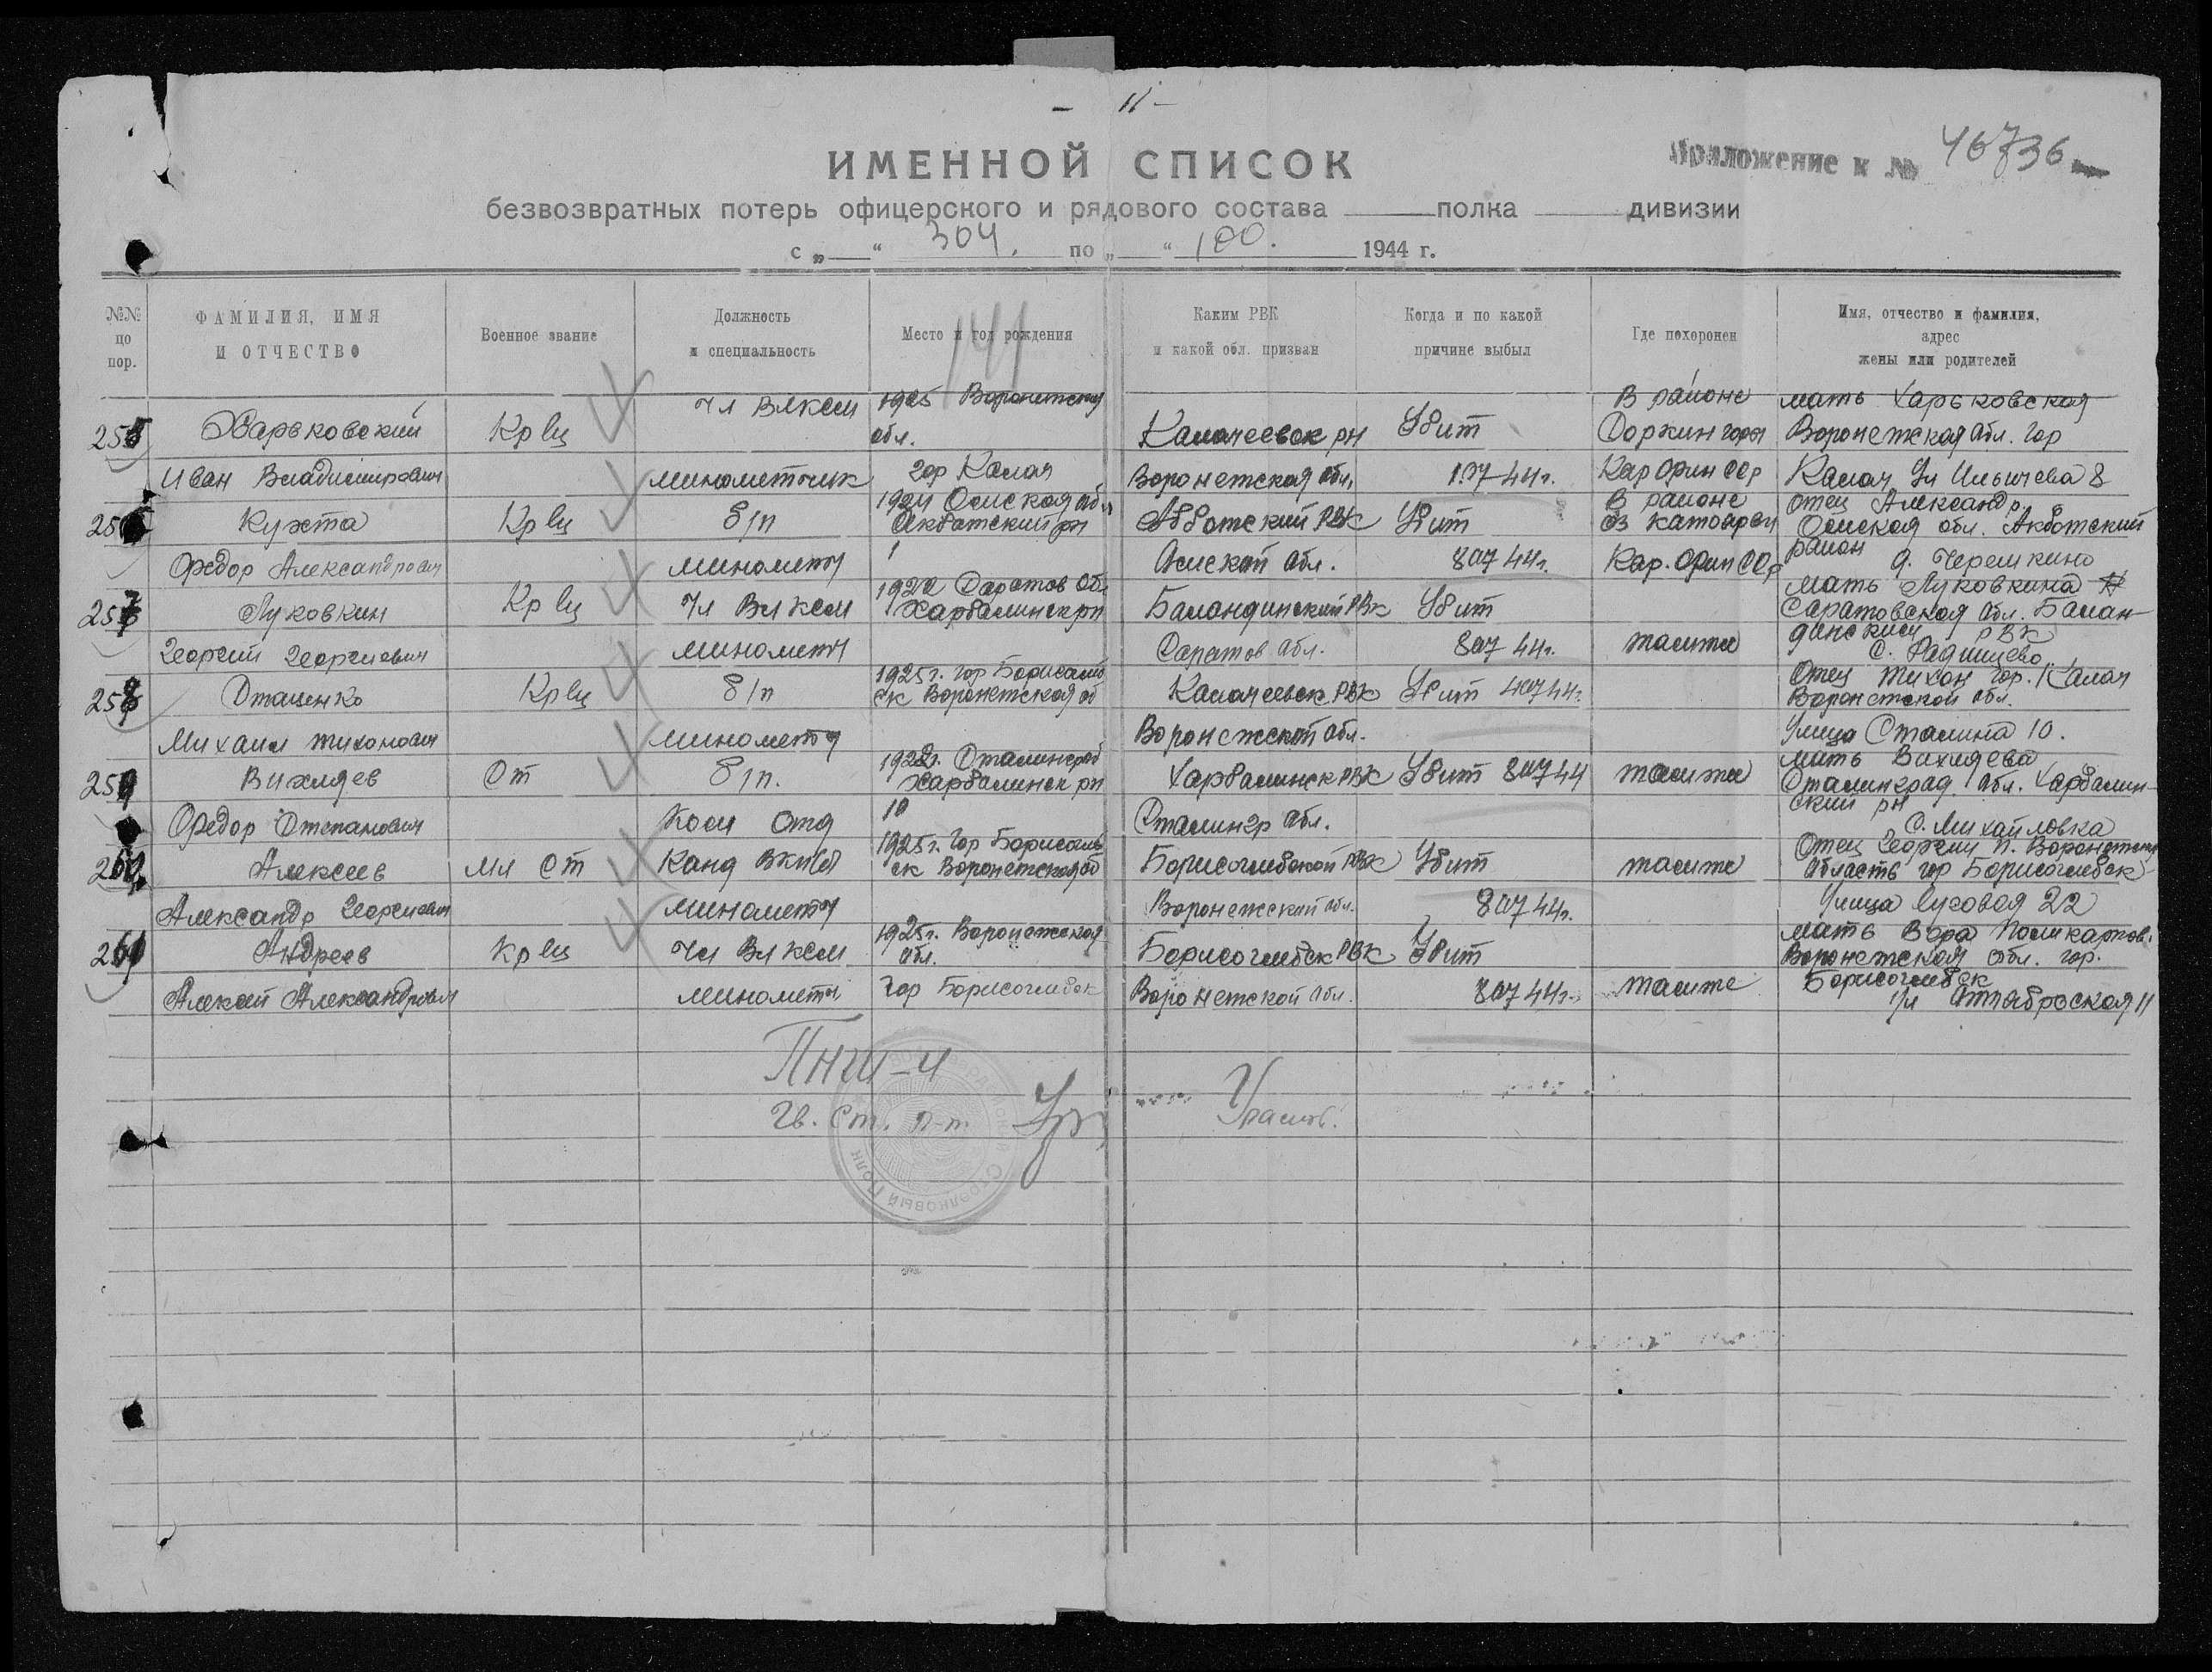 - 11 -
ИМЕННОЙ СПИСОК
Приложение к № 46736
безвозвратных потерь офицерского и рядового состава полка дивизии
с „ “ 304. по „ “ 100. 1944 г.
№№ по пор.
ФАМИЛИЯ, ИМЯ И ОТЧЕСТВО
Военное звание
Должность и специальность
Место и год рождения
141
Каким РВК и какой обл. призван
Когда и по какой причине выбыл
Где похоронен
Имя, отчество и фамилия, адрес жены или родителей
255 Харьковский Кр-ец Чл ВЛКСМ 1925 Воронежская обл. Калачеевск рн Убит В районе Мать Харьковская
Воронежская обл. гор
Иван Владимирович минометчик гор Калач Воронежская обл. 1.07-44г. Кар Фин ССР Калач Ул Ильичева 8
Кухта Кр-ец б/п 1924 Омская обл РВК Убит В районе отец Александр
оз Омская обл.
Федор Александрович минометч Омской обл. 8.07 44г. Кар. Фин ССР район д. Черемкино
257 Луковкин Кр-ец Чл ВЛКСМ Саратов обл Баландинский РВК Убит Мать Луковкина
Саратовская обл. Балан-
Георгий Георгиевич минометч Саратов обл. 8.07 44г. там же динский РВК
с. Радищево
258 Стаценко Кр-ец б/п 1925г. гор Борисоглеб Калачеевск РВК Убит 4.07 44г. Отец Тихон гор. Калач
ск Воронежская об Воронежской обл.
Михаил Тихонович минометч Воронежской обл. Улица Сталина 10.
259 Вихляев Ст б/п. Сталинград Харабалинск РВК Убит 8.07 44 там же мать Вихляева
Харабалинск рн Сталинград обл. Харабалин-
Федор Степанович Ком Отд Сталингр обл. ский рн
с. Михайловка
260 Алексеев Мл Ст Канд ВКП(б) 1925г. гор Борисоглеб Борисоглебский РВК Убит там же Отец Георгий П. Воронежская
ск Воронежская об область гор Борисоглебск
Александр Георгиевич минометч Воронежской обл. 8.07 44г. Улица Луговая 22
261 Андреев Кр-ец Чл ВЛКСМ 1925г. Воронежская обл. Борисоглебск РВК Убит Мать Вера Поликарпов.
Воронежская обл. гор.
Алексей Александрович минометч. гор Борисоглебск Воронежской обл. 8.07 44г. там же Борисоглебск
ул Октябрьская 11
ПНШ-4
Гв. Ст. л-т.
Стрелковый Полк